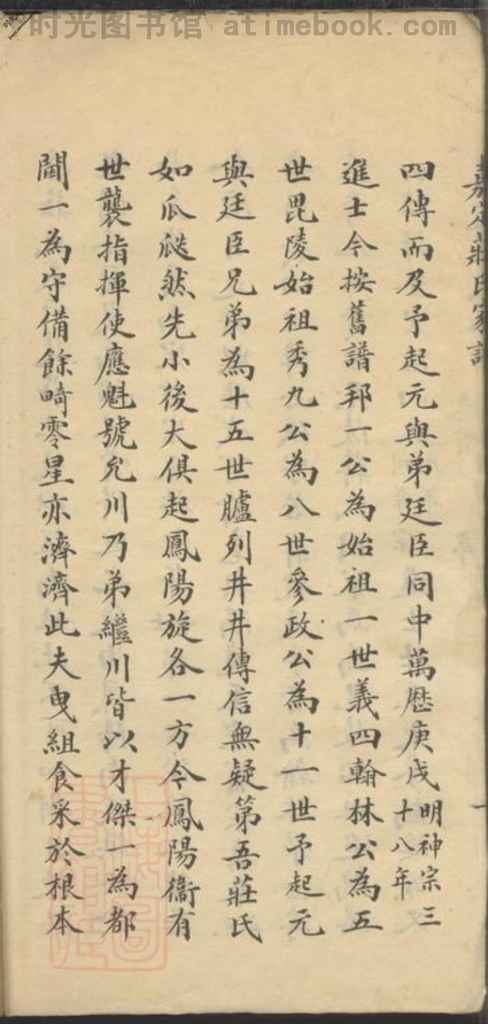 时光图书馆 atimebook.com
嘉定莊氏家譜
四傳而及予起元與弟廷臣同中萬歷庚戌明神宗三十八年
進士今按舊譜邦一公為始祖一世義四翰林公為五
世毘陵始祖秀九公為八世參政公為十一世予起元
與廷臣兄弟為十五世臚列井井傳信無疑第吾莊氏
如瓜瓞然先小後大俱起鳳陽旋各一方今鳳陽衞有
世襲指揮使應魁號允川乃弟繼川皆以才傑一為都
閫一為守備餘畸零星亦濟濟此夫曳組食采於根本